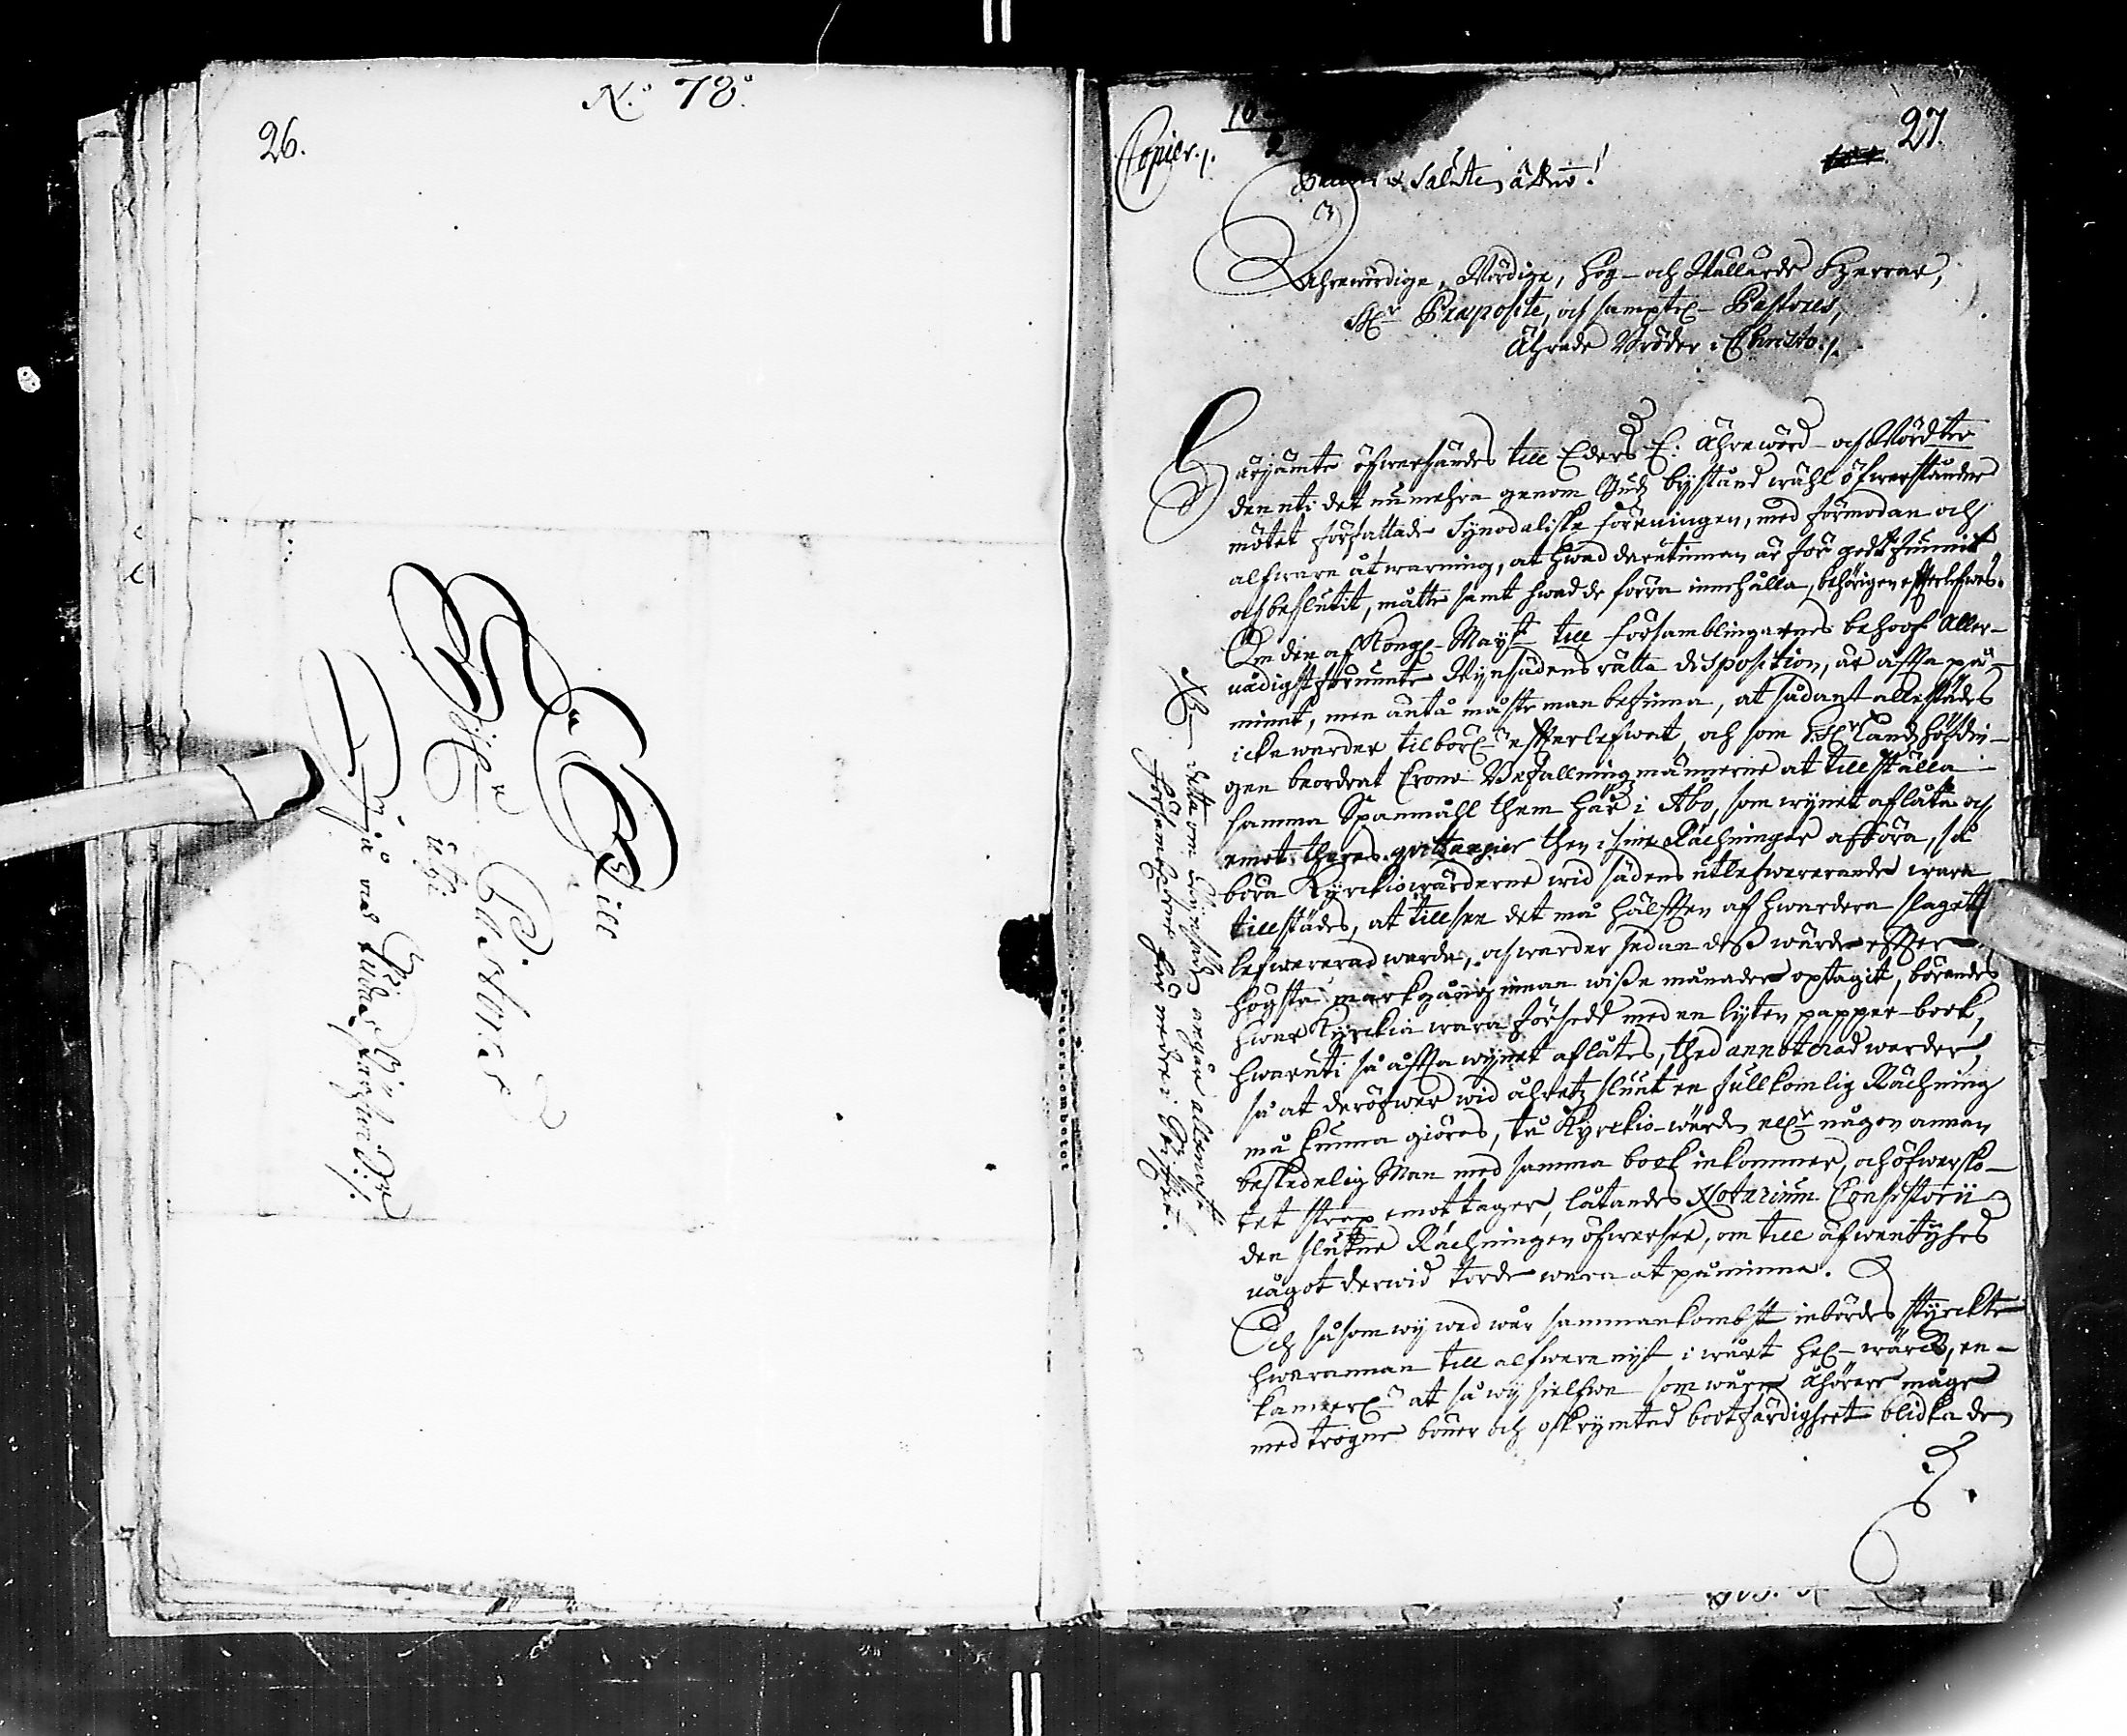 No. 78.
26.
Till
H:r Pastores
uti
27.
Copier./.
Salutem à Dno!
Ehrewördige, Wördige, Hög- och Wällärde Herrar,
H:r Præposite, och samptl: Pastores,
Ährade Bröder i Christo./.
Härjämte öfwersändes till Eders E: Ährewörd- och Wördter
den uti det nu mehra genom Gudz bijstånd wähl öfwerståndne
mötet författade Synodaliske föreningen, med förmodan och
alfware åtwarning, at hwad derutinnan är för godt funnit
och beslutit, måtte samt hwad de förra innehålla, behörigen effterlefwas.
Om den af Kongl. Maij:tt till församblingarnes behoof Aller-
nådigst förunnte Wijnsädens rätta disposition, är offta på-
mint, men ändå måste man befinna, at sådant allestädes
icke warder tilbörl: effterlefwat, och som H:r Landzhöfdin-
gen beordrat Crono Befallningzmännerne at tillställa
samma Spanmåhl them här i Åbo, som wijnet aflåta och
emot theras qvittencier then i sine Räkningar afföra, så
böra Kyrckiowärderne wid sädens utlefwererande wara
tillstädes, at tillsee det må hälfften af hwardera slaget
lefwererad warda, och warder sedan dess wärde effter
högsta markgång innan wisse månader optagit, börandes
hwar Kyrckia wara försedd med en lijten papper-book,
hwaruti så offta wijnet aflåtes, thed annoterad warder,
så at deröfwer wid åhretz sluut en fullkomlig Räkning
må kunna giöras, tå Kyrckio-wärden ell:r någon annan
beskedelig Man med samma book inkommer, och öfwersko-
tet strax emottager, låtandes Notarium Consistorii
den slutne Räkningen öfwersee, om till äfwentyhrs
något derwid torde wara at påminna.
Och såsom wij wed wår sammankombst inbördes styrckte
hwarannan till alfware nijt i wårt hel: wärck, en-
kannerl: at så wij sielfwe som wåre åhörare måge
med trogne böner och oskrymtad bootfärdigheet blidka den
NB. detta om Wijnsäden angår allenast
församblingarne här nedre i Stifftet.